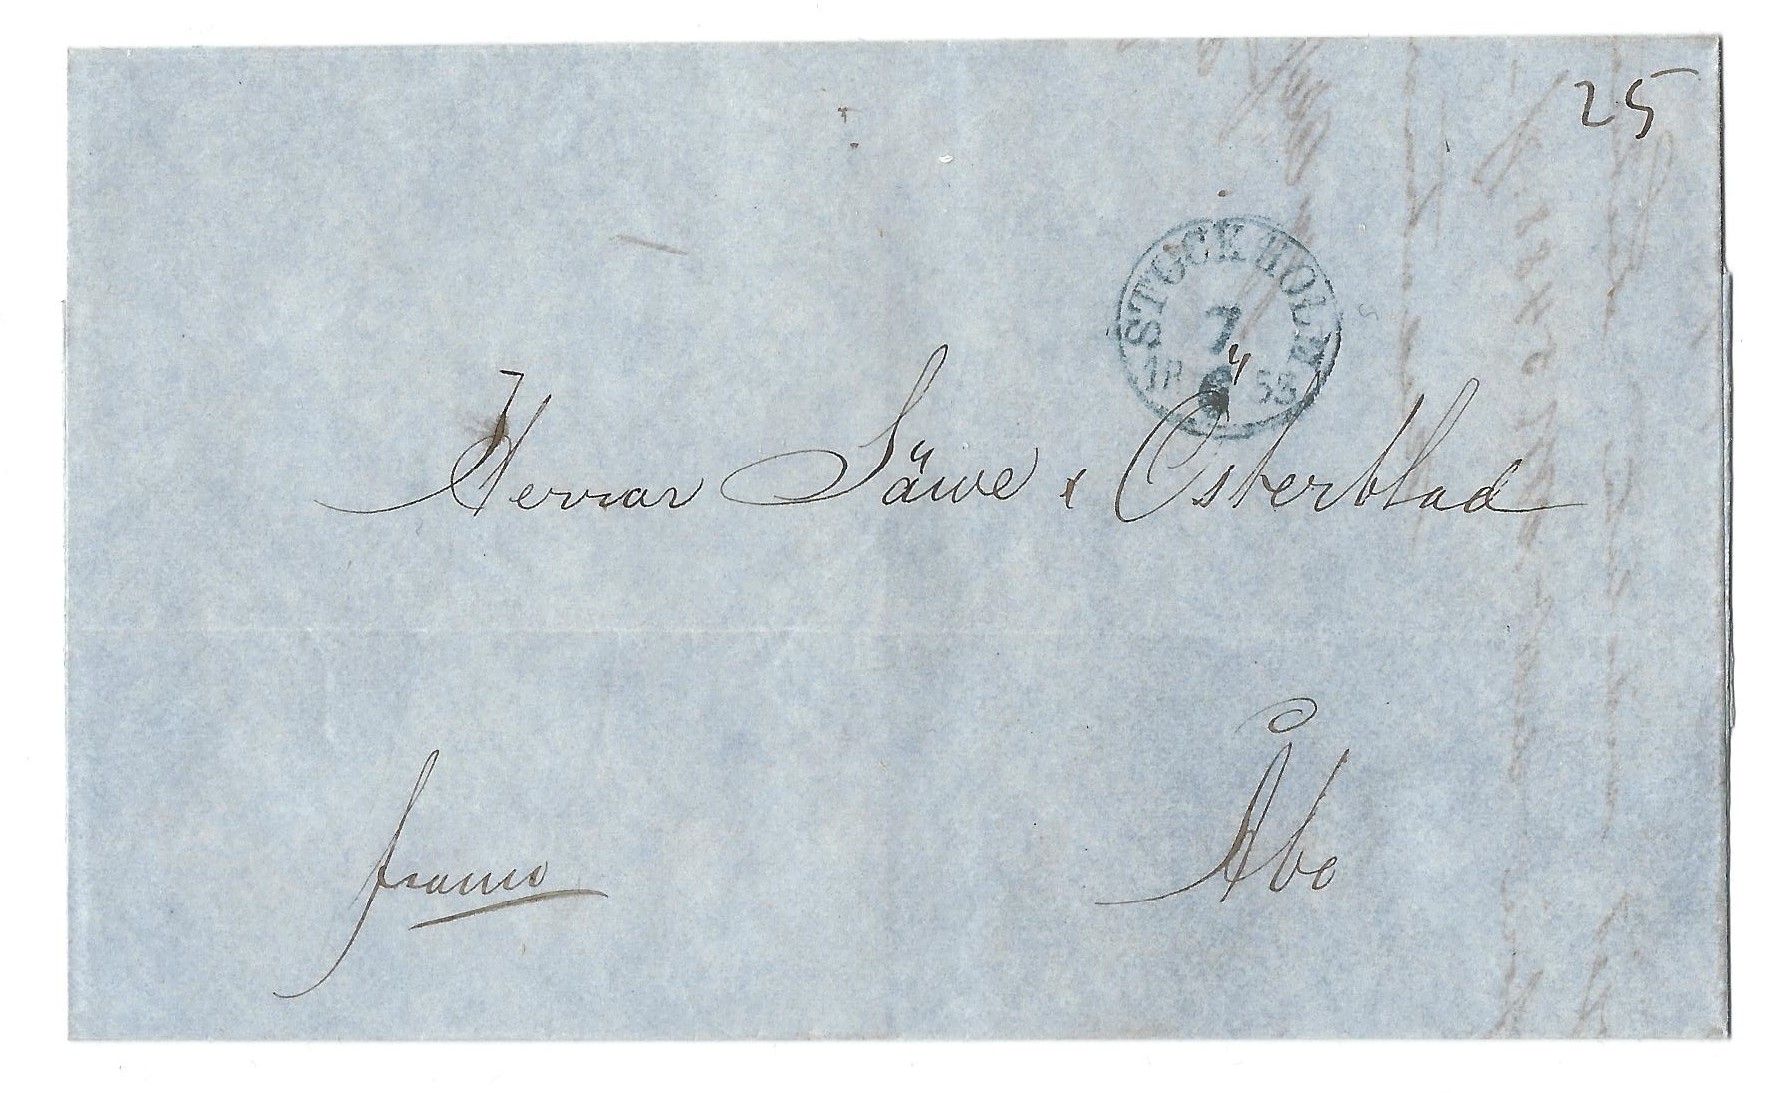 25
STOCKHOLM
7
18 6 55
Herrar Säwe & Österblad
Åbo
franco